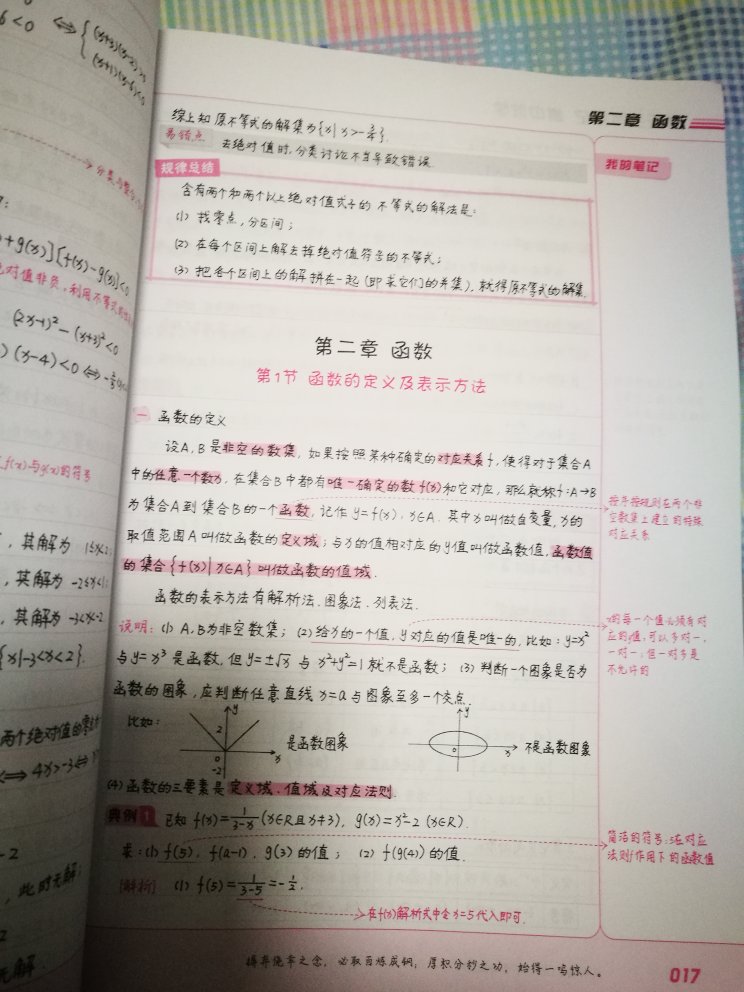 6<0 ⇔ {(x+3)(x-2)>0
(x+1)(x-6)<0
第二章 函数
综上知原不等式的解集为{x|x>-3/4}.
易错点 去绝对值时,分类讨论不当导致错误.
我的笔记
规律总结
含有两个和两个以上绝对值式子的不等式的解法是:
(1) 找零点,分区间;
(2) 在每个区间上解去掉绝对值符号的不等式;
(3) 把各个区间上的解拼在一起(即求它们的并集),就得原不等式的解集.
+g(x)][f(x)-g(x)]<0
对值非负,利用不等式
(2x-1)²-(x+3)²<0
(x-4)<0⇔
f(x)与g(x)的符号
,其解为 1≤x<2
,其解为 -2≤x<1
,其解为 -3<x<-2
{x|-3<x<2}.
两个绝对值的零点
⇔4x>-3⇔
-2
,此时无解
2
无解
第二章 函数
第1节 函数的定义及表示方法
一 函数的定义
设A,B是非空的数集,如果按照某种确定的对应关系f,使得对于集合A
中的任意一个数x,在集合B中都有唯一确定的数f(x)和它对应,那么就称f:A→B
为集合A到集合B的一个函数,记作y=f(x),x∈A.其中x叫做自变量,x的
取值范围A叫做函数的定义域;与x的值相对应的y值叫做函数值,函数值
的集合{f(x)|x∈A}叫做函数的值域.
按并按规则在两个非
空数集上建立的特殊
对应关系
函数的表示方法有解析法、图象法、列表法.
说明:(1) A,B为非空数集;(2)给x的一个值,y对应的值是唯一的,比如:y=x²
与y=x³是函数,但y=±√x与x²+y²=1就不是函数;(3)判断一个图象是否为
函数的图象,应判断任意直线x=a与图象至多一个交点.
x的每一个值必须有对
应的y值,可以多对一,
一对一,但一对多是
不允许的
比如: y 2 0 -2 x 是函数图象 y 0 x 不是函数图象
(4)函数的三要素是定义域、值域及对应法则.
典例1 已知f(x)=1/(3-x)(x∈R且x≠3),g(x)=x²-2(x∈R).
求:(1)f(5),f(a-1),g(3)的值;(2)f(g(4))的值.
简洁的符号:5在对应
法则f作用下的函数值
[解析] (1)f(5)=1/(3-5)=-1/2.
在f(x)解析式中令x=5代入即可.
摒弃侥幸之念,必取百炼成钢;厚积分秒之功,始得一鸣惊人。
017